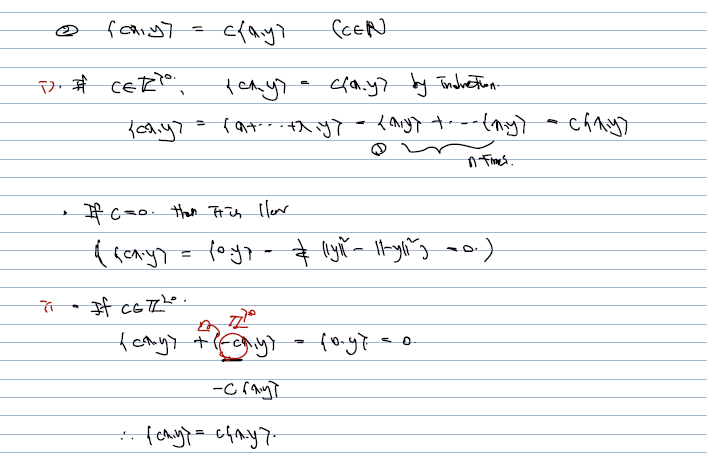 ② {cx,y} = c{x,y} (c∈ℝ)
i). If c∈ℤ^{>0}, {cx,y} = c{x,y} by induction.
{cx,y} = {x+···+x,y} = {x,y} +···{x,y} = c{x,y}
① n times.
· If c=0. then it is clear
( {cx,y} = {0,y} = ¼ {||y||² - ||-y||²} = 0. )
ii · If c∈ℤ^{<0}.
② ℤ^{>0}
{cx,y} + {-cx,y} = {0,y} = 0.
-c{x,y}
∴ {cx,y} = c{x,y}.